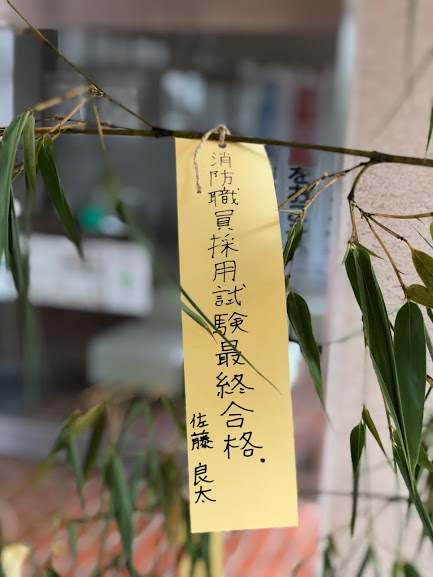 消防職員採用試験最終合格.
佐藤 良太